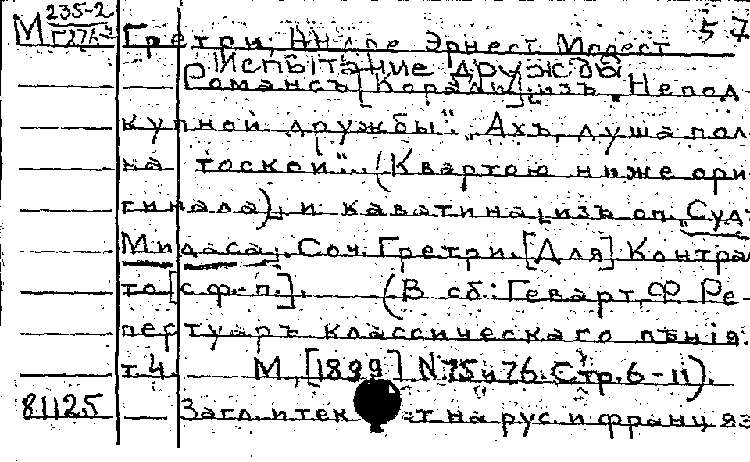 М 235-2 57
Г276
Гретри, Андре Эрнест Модест
Испытание дружбы
Романсъ [Корали] изъ "Непод-
купной дружбы". "Ахъ, душа пол-
на тоской". (Квартою ниже ори-
гинала), и каватина изъ оп. "Суд
Мидаса". Соч. Гретри. [Для] Контра
то [с ф.-п.]. (В сб.: Геварт, Ф. Ре-
пертуаръ классическаго пѣнія.
т. 4. М, [1899] N 75 и 76. Стр. 6-11).
81125 Загл. и тек ат на рус. и франц яз